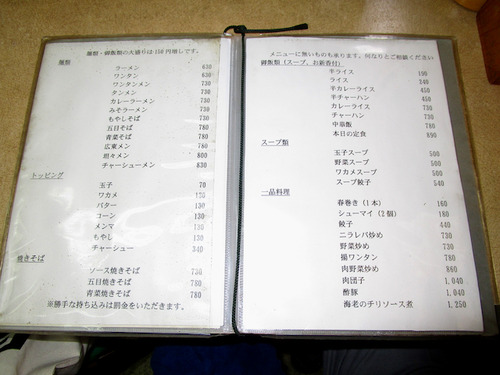 麺類・御飯類の大盛りは150円増しです。
麺類
ラーメン 630
ワンタン 630
ワンタンメン 730
タンメン 730
カレーラーメン 730
みそラーメン 730
もやしそば 730
五目そば 780
青菜そば 780
広東麺 780
坦々メン 800
チャーシューメン 830
トッピング
玉子 70
ワカメ 130
バター 130
コーン 130
メンマ 130
もやし 130
チャーシュー 340
焼きそば
ソース焼きそば 730
五目焼きそば 780
青菜焼きそば 780
※勝手な持ち込みは罰金をいただきます。
メニューに無いものも承ります。何なりとご相談ください
御飯類(スープ、お新香付)
半ライス 190
ライス 240
半カレーライス 450
半チャーハン 450
カレーライス 730
チャーハン 730
中華飯 780
本日の定食 890
スープ類
玉子スープ 500
野菜スープ 500
ワカメスープ 500
スープ餃子 540
一品料理
春巻き(1本) 160
シューマイ(2個) 180
餃子 440
ニラレバ炒め 730
野菜炒め 730
揚ワンタン 780
肉野菜炒め 860
肉団子 1,040
酢豚 1,040
海老のチリソース煮 1,250